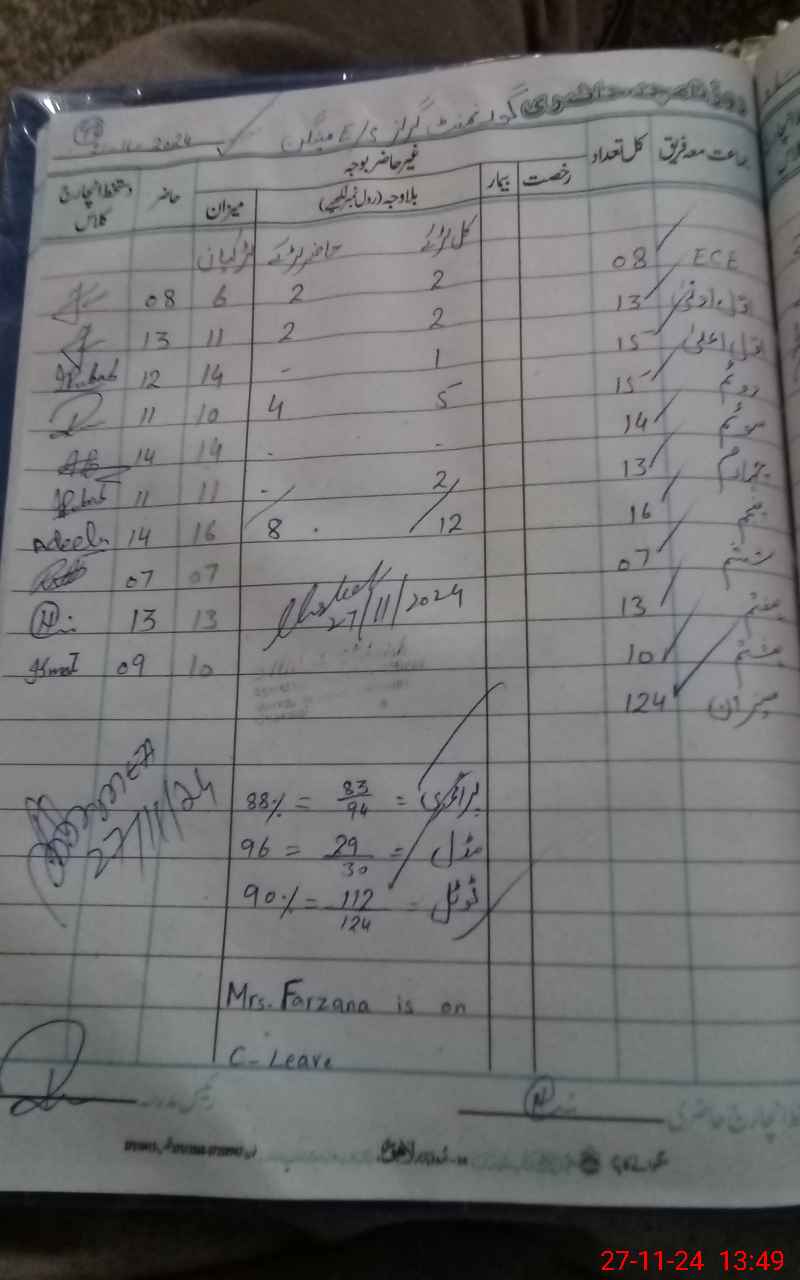 گورنمنٹ گرلز E/S
2024
جماعت معہ فریق کل تعداد رخصت بیمار غیر حاضر بوجہ حاضر دستخط انچارج کلاس
بلاوجہ (رول نمبر لکھیے) میزان
کل لڑکے حاضر لڑکے لڑکیاں
ECE 08 2 2 6 08
اول ادنیٰ 13 2 2 11 13
اول اعلیٰ 15 1 - 14 12
دوئم 15 5 4 10 11
سوئم 14 - - 14 14
چہارم 13 2 - 11 11
پنجم 16 12 8 16 14 Adeela
ششم 07 07 07
ہفتم 13 13 13
ہشتم 10 10 09
میزان 124
27/11/2024
27/11/24
پرائمری = 83/94 = 88%
مڈل = 29/30 = 96
ٹوٹل = 112/124 = 90%
Mrs. Farzana is on
C-Leave
27-11-24 13:49